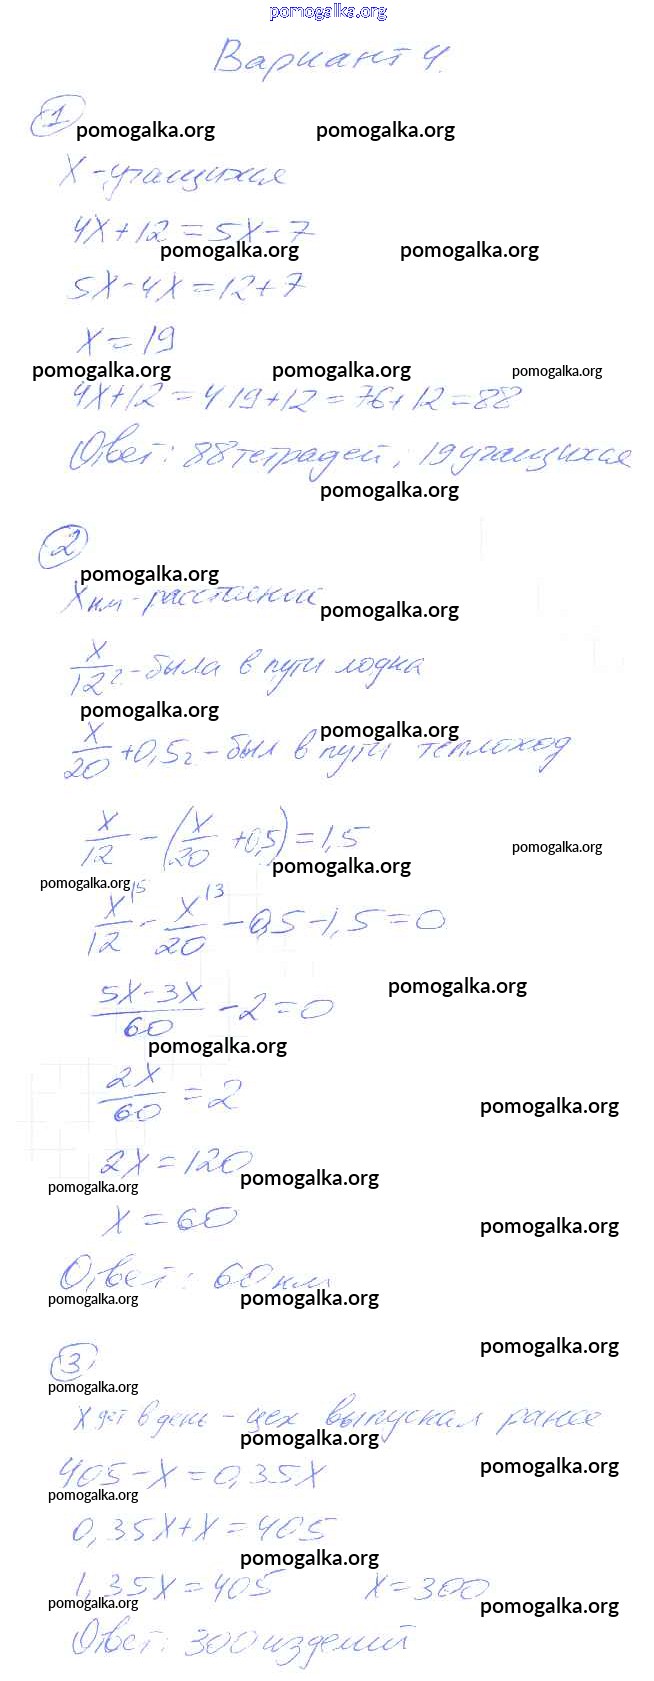 pomogalka.org
Вариант 4.
1
pomogalka.org pomogalka.org
X - учащихся
4X + 12 = 5X - 7
pomogalka.org pomogalka.org
5X - 4X = 12 + 7
X = 19
pomogalka.org pomogalka.org pomogalka.org
4X + 12 = 4 19 + 12 = 76 + 12 = 88
Ответ: 88 тетрадей; 19 учащихся
pomogalka.org
2
pomogalka.org
X км - расстояний
pomogalka.org
X/12 г - была в пути лодка
pomogalka.org
pomogalka.org
X/20 + 0,5 г - был в пути теплоход
X/12 - (X/20 + 0,5) = 1,5
pomogalka.org
pomogalka.org
pomogalka.org
X/12 |5 - X/20 |3 - 0,5 - 1,5 = 0
pomogalka.org
5X - 3X/60 - 2 = 0
pomogalka.org
2X/60 = 2
pomogalka.org
2X = 120
pomogalka.org pomogalka.org
X = 60
pomogalka.org
Ответ: 60 км
pomogalka.org pomogalka.org
pomogalka.org
3
pomogalka.org
X дет в день - цех выпускал ранее
pomogalka.org
pomogalka.org
405 - X = 0,35X
pomogalka.org
0,35X + X = 405
pomogalka.org
1,35X = 405 X = 300
pomogalka.org pomogalka.org
Ответ: 300 изделий